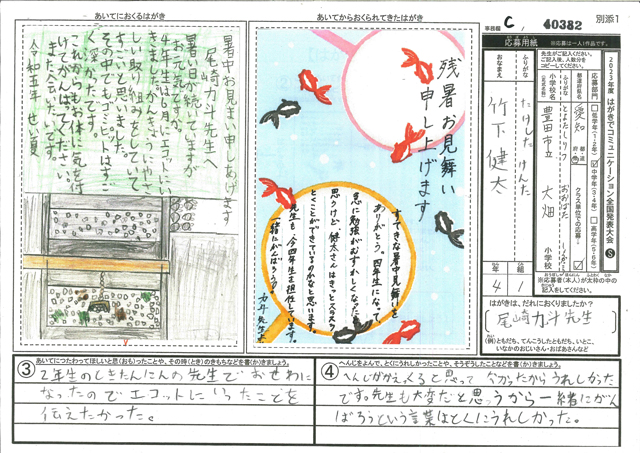 あいてにおくるはがき
暑中お見まい申しあげます
尾崎力斗先生へ
暑い日が続いていますが
お元気ですか。
4年生は6月にエコットにい
きました。かんきょうにやさ
しい取り組みをしていて、
すごいと思いました。
その中でもゴミピットはすご
く深かったです。
これからもお体に気を付
けてがんばってください。
また会いたいです。
令和五年 せい夏
あいてからおくられてきたはがき
残暑お見舞い
申し上げます
すてきな暑中見舞いを
ありがとう。四年生になって
急に勉強がむずかしくなったと
思うけど、健太さんはきっとスラスラ
とくことができているのかなと思います。
先生も、今四年生を担任しています。
一緒にがんばろうね。
力斗先生
事務局
C
40382
別添1
応募用紙
※応募は一人1作品です。
先生がご記入ください。
ご記入後、人数分を
コピーしてください。
2023年度 はがきでコミュニケーション全国発表大会
応募部門
低学年(1・2年)
中学年(3・4年)
高学年(5・6年)
都道府県名
愛知
ふりがな
小学校名
豊田市立
大畑
おおばた
小学校
クラス単位での応募
ふりがな
たけした けんた
おなまえ
竹下 健太
年
4
組
1
※応募者(本人)が太枠の中の
記入をしてください。
はがきは、だれにおくりましたか?
尾崎力斗先生
(例)ともだち、てんこうしたともだち、いとこ、
いなかのおじいさん・おばあさんなど
③
あいてにつたわってほしいと思(おも)ったことや、その時(とき)のきもちなどを書(か)きましょう。
2年生のしきたんにんの先生でおせわに
なったのでエコットにいったことを
伝えたかった。
④
へんじをよんで、とくにうれしかったことや、そうぞうしたことなどを書(か)きましょう。
へんじがかえってくると思って
なかったからうれしかった
です。先生も大変だと思うから一緒にがん
ばろうという言葉はとくにうれしかった。